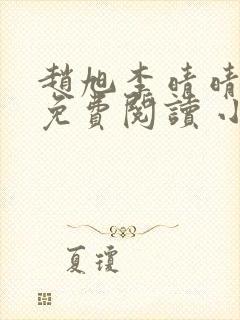 趙旭李晴晴
免費閱讀小
夏瓊